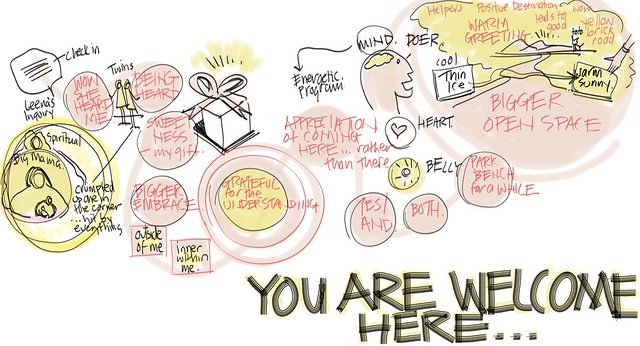 Check in
Leena's
Inquiry
WON
SHE
HEART
ME
Twins
BEING
HEARD
SWEET
NESS
my gift.
Spiritual
Big Mama.
crumpled
up one in
the corner
...hit by
everything
BIGGER
EMBRACE
outside
of me
inner
within
me.
GRATEFUL
for the
UNDERSTANDING
MIND. DOER.
Energetic.
Program
APPRECIATION
OF COMING
HERE... rather
than there
HEART.
BELLY
YES/
AND
BOTH.
PARK
BENCH
for a WHILE.
Helpers Positive Destination
WARM
GREETING
leads to
good
toto
yellow
brick
road
cool
Thin
Ice
warm
sunny.
BIGGER
OPEN SPACE
YOU ARE WELCOME
HERE...